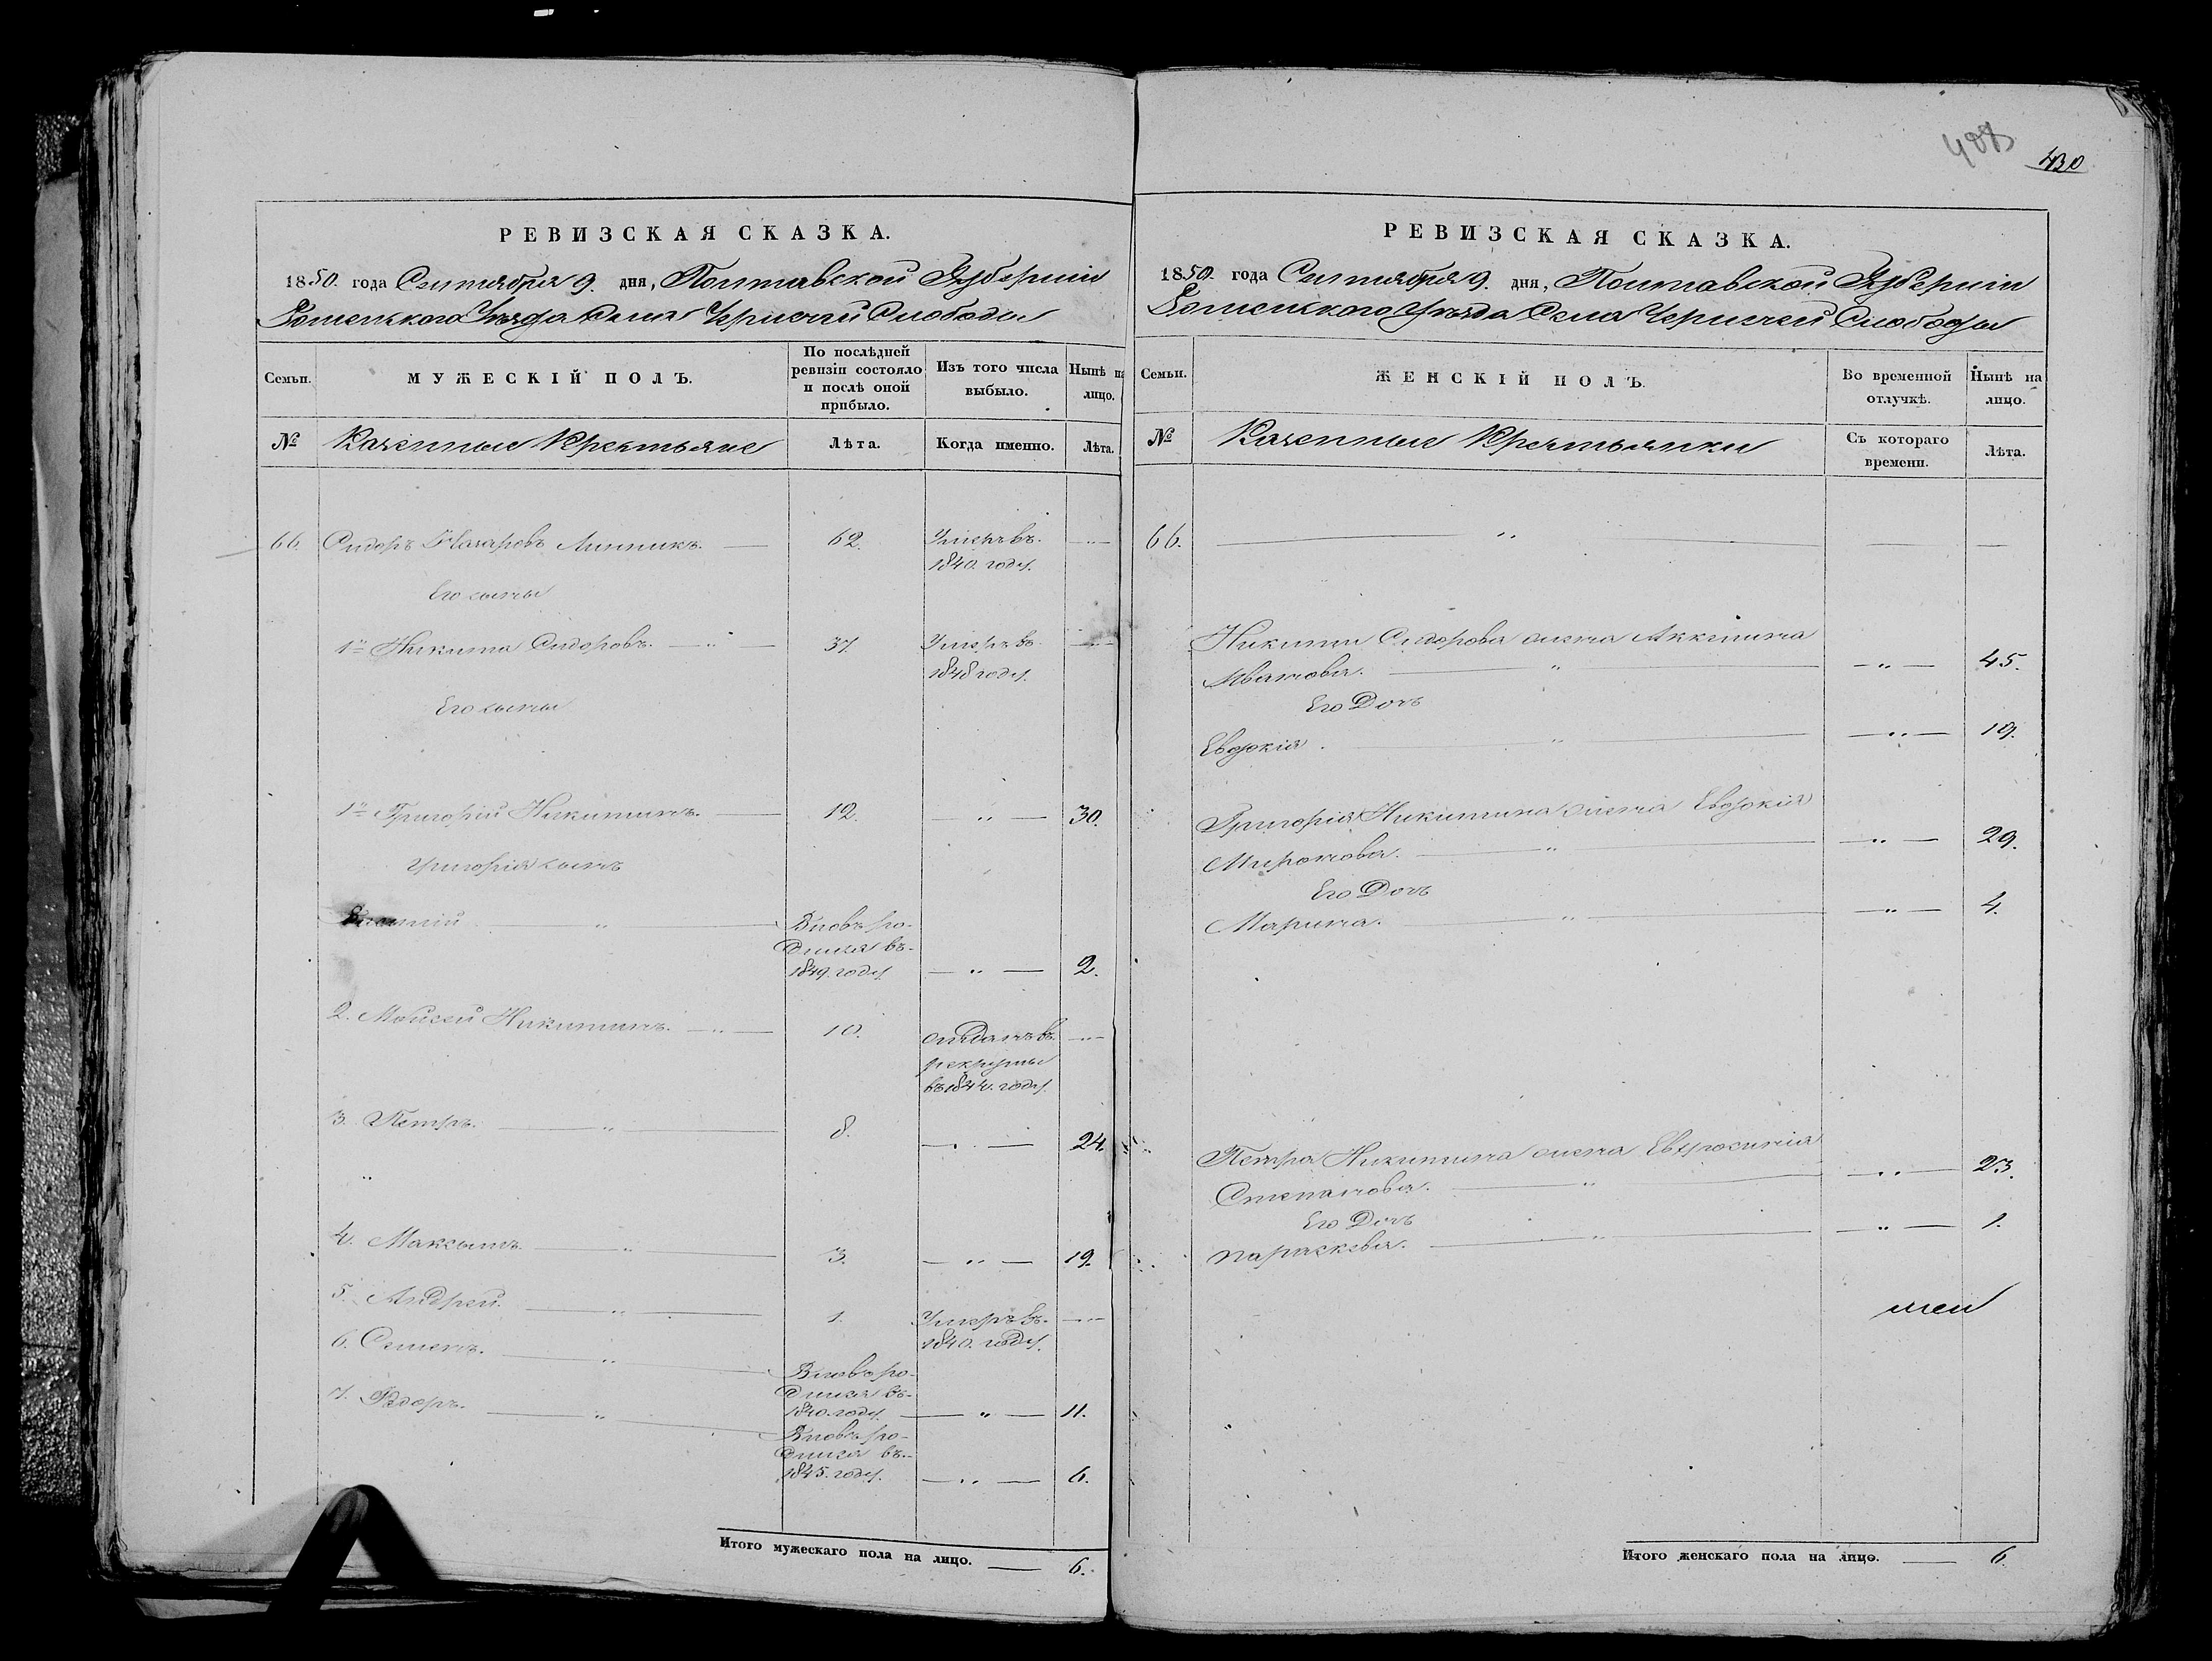 408
430
РЕВИЗСКАЯ СКАЗКА.
1850. года Сентября 9. дня, Полтавской Губерніи
Роменского Уезда Села Чернечей Слободы
Семьи.
МУЖЕСКІЙ ПОЛЪ.
По послѣдней ревизіи состояло и послѣ оной прибыло.
Изъ того числа выбыло.
Нынѣ на лицо.
№
Казенные Крестьяне
Лѣта.
Когда именно.
Лѣта.
66. Сидоръ Назаровъ Линникъ. — 62. Умеръ въ — " —
1840. году.
Его сыны
1й Никита Сидоровъ. — " — 37. Умеръ въ — " —
1848 году.
Его сыны
1й Григорій Никитинъ. — 12. — " — 30.
Григорія сынъ
— " — Вновь ро-
дился въ
1849. году — " — 2.
2. Мойсей Никитинъ. — " — 10. отданъ въ — " —
рекруты
въ 1844. году.
3. Петръ. — " — 8. — " — 24.
4. Максымъ. — " — 3. — " — 19.
5. Андрей. — " — 1. Умеръ въ — " —
1840. году.
6. Семенъ. — " — Вновь ро-
дился въ
1840. году. — " — 11.
7. Федоръ. — " — Вновь ро-
дился въ
1845. году. — " — 6.
Итого мужескаго пола на лицо. — 6.
РЕВИЗСКАЯ СКАЗКА.
1850. года Сентября 9. дня, Полтавской Губерніи
Роменского Уезда Села Чернечей Слободы
Семьи.
ЖЕНСКІЙ ПОЛЪ.
Во временной отлучкѣ.
Нынѣ на лицо.
№
Казенные Крестьянки
Съ котораго времени.
Лѣта.
66. — " — — —
Никиты Сидорова жена Аккилина
Иванова. — " — — " — 45.
Его Дочь
Евдокія. — " — — " — 19.
Григорія Никитина жена Евдокія
Миронова. — " — — " — 29.
Его Дочь
Марина. — " — — " — 4.
Петра Никитина жена Евфросинія
Степанова. — " — — " — 23.
Его Дочь
Параскева. — " — — " — 1.
Итого женскаго пола на лицо. — 6.